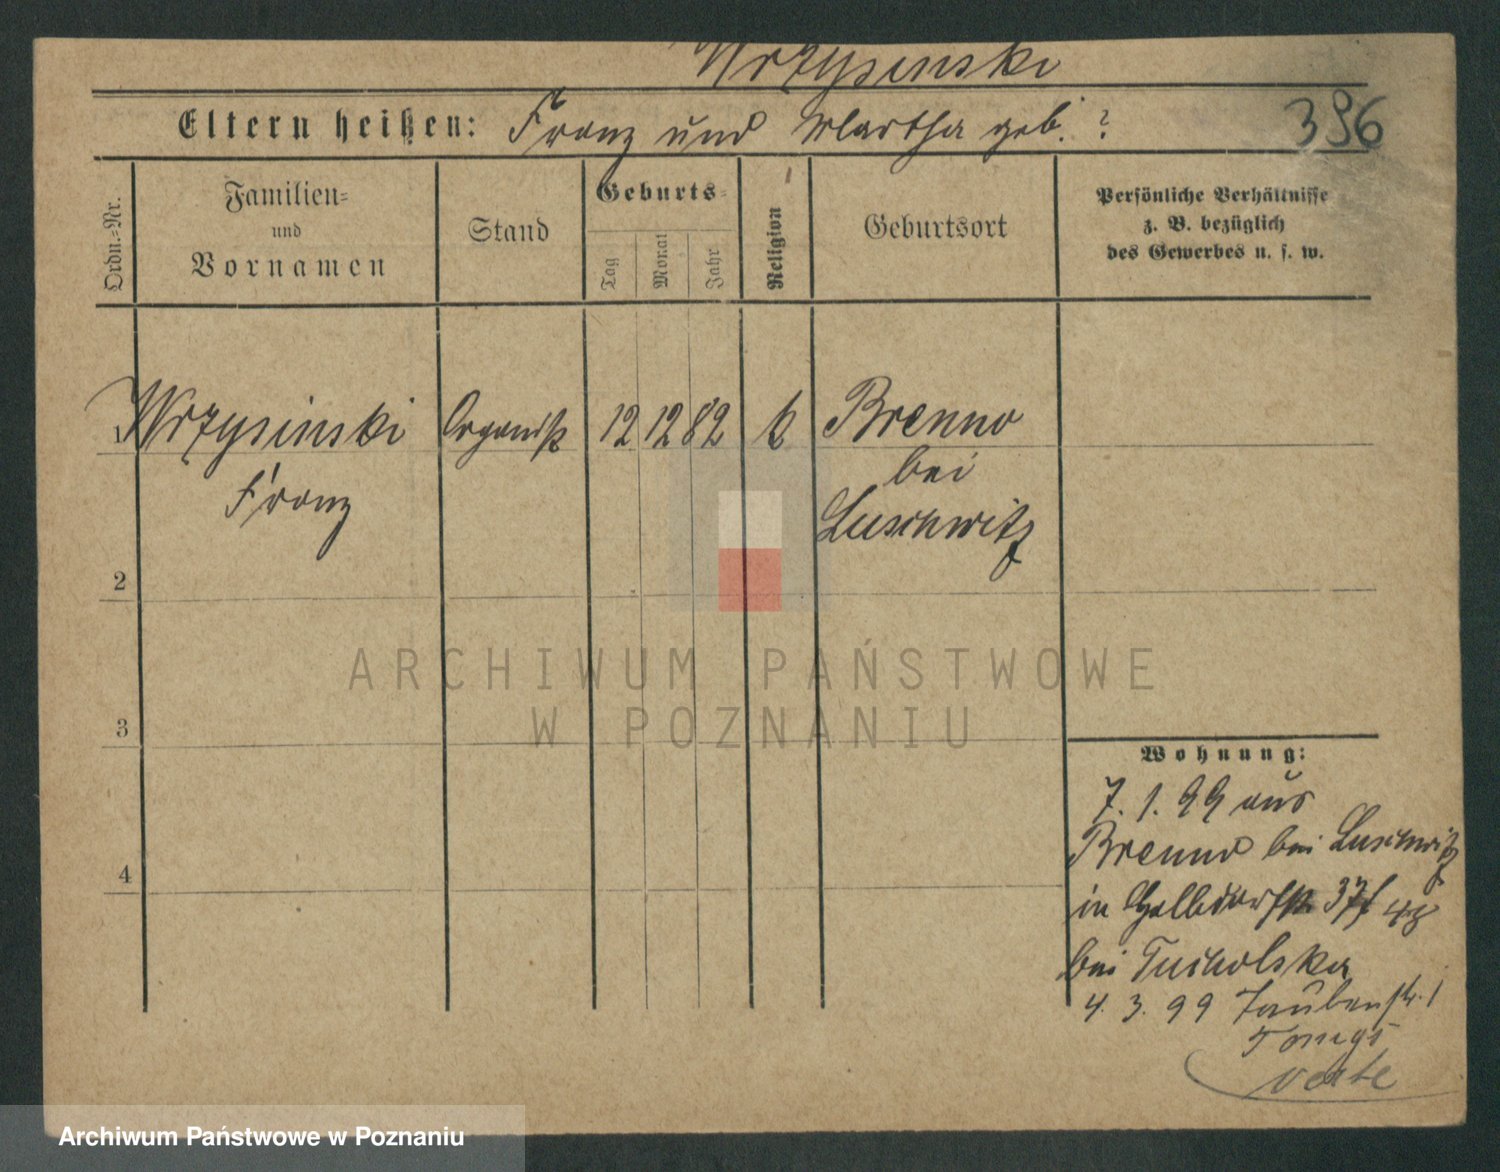 Wrzysinski
Eltern heißen: Franz und Martha geb. ?
396
Ordn.-Nr.
Familien-
und
Vornamen
Stand
Geburts-
Tag
Monat
Jahr
Religion
Geburtsort
Persönliche Verhältnisse
z. B. bezüglich
des Gewerbes u. s. w.
1 Wrzysinski Organist 12 12 82 k Brenno
Franz
bei
Luschwitz
2
3
4
Wohnung:
7. 1. 99 aus
Brenno bei Luschwitz
in Halbdorfstr. 37
bei Tucholska
4. 3. 99 Taubenstr. 1
verte
ARCHIWUM PAŃSTWOWE
W POZNANIU
Archiwum Państwowe w Poznaniu